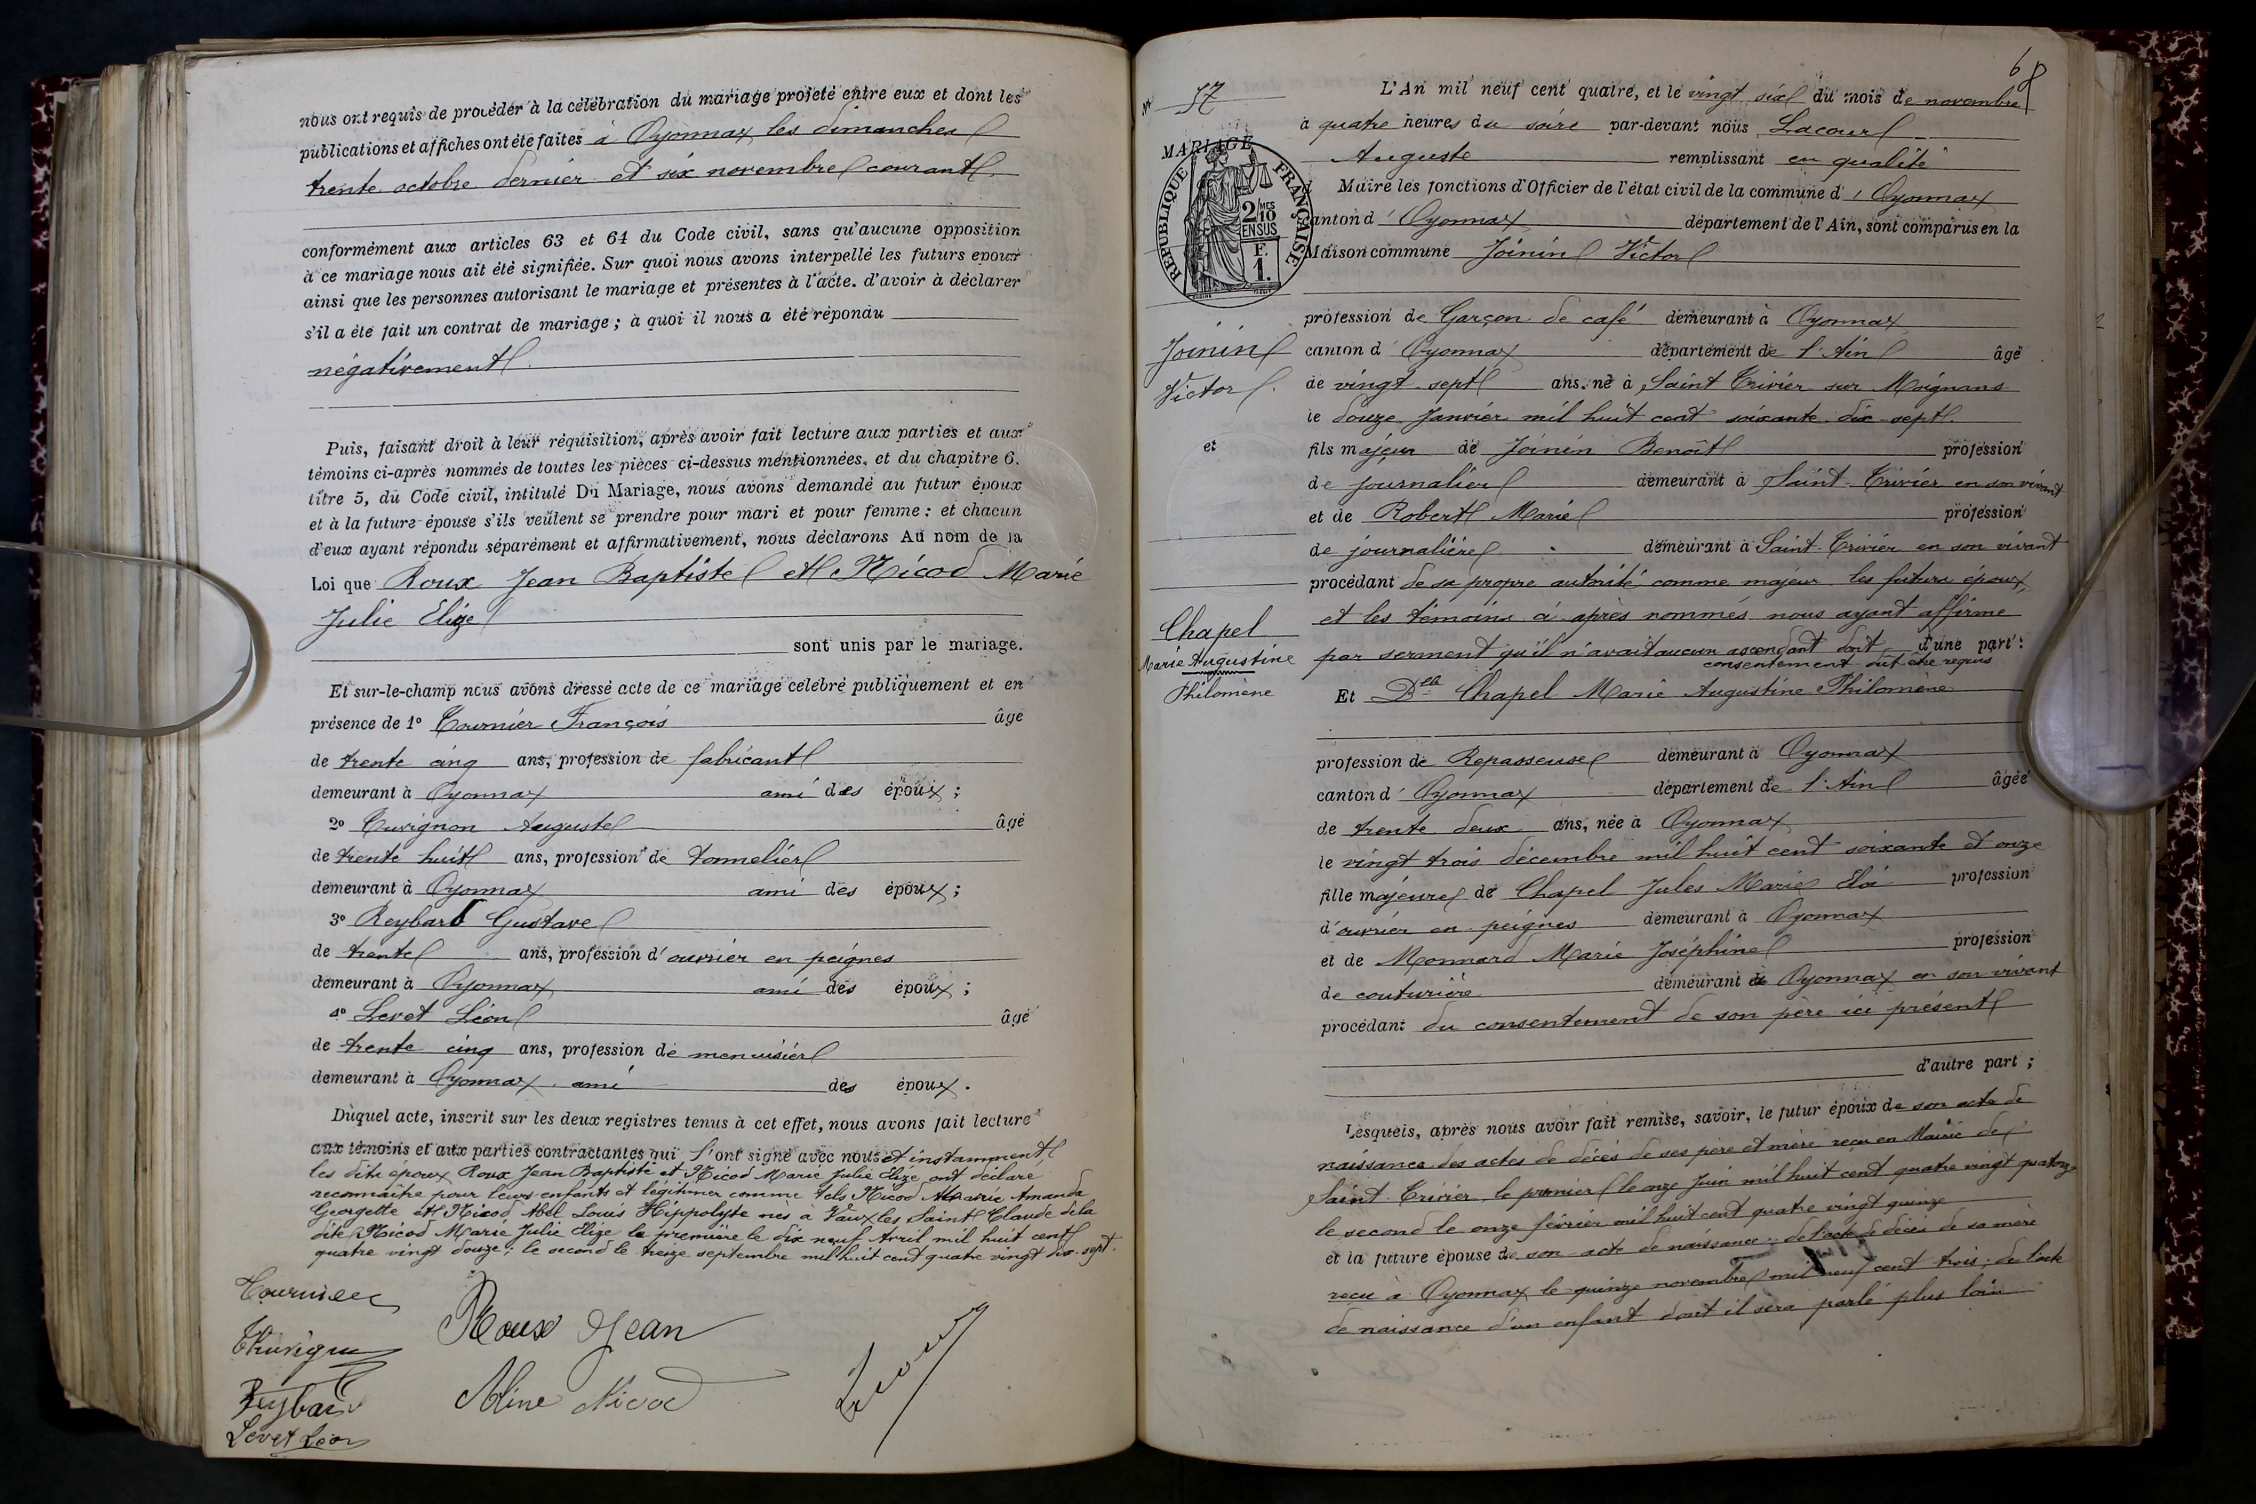 nous ont requis de procéder à la célébration du mariage projeté entre eux et dont les
publications et affiches ont été faites à Oyonnax les dimanches
trente octobre dernier et six novembre courant.
conformément aux articles 63 et 64 du Code civil, sans qu'aucune opposition
à ce mariage nous ait été signifiée. Sur quoi nous avons interpellé les futurs epoux
ainsi que les personnes autorisant le mariage et présentes à l'acte. d'avoir à déclarer
s'il a été fait un contrat de mariage ; à quoi il nous a été répondu
négativement.
Puis, faisant droit à leur réquisition, après avoir fait lecture aux parties et aux
témoins ci-après nommés de toutes les pièces ci-dessus mentionnées, et du chapitre 6.
titre 5, du Code civil, intitulé Du Mariage, nous avons demandé au futur époux
et à la future épouse s'ils veulent se prendre pour mari et pour femme : et chacun
d'eux ayant répondu séparément et affirmativement, nous déclarons Au nom de la
Loi que Roux Jean Baptiste et Nicod Marie
Julie Elize
sont unis par le mariage.
Et sur-le-champ nous avons dressé acte de ce mariage célébré publiquement et en
présence de 1º Tournier François âge
de trente cinq ans, profession de fabricant
demeurant à Oyonnax ami des époux ;
2º Tuvignon Auguste âgé
de trente huit ans, profession de tonnelier
demeurant à Oyonnax ami des époux ;
3º Reybard Gustave
de trente ans, profession d'ouvrier en peignes
demeurant à Oyonnax ami des époux ;
4º Levet Léon âgé
de trente cinq ans, profession de menuisier
demeurant à Oyonnax ami des époux.
Duquel acte, inscrit sur les deux registres tenus à cet effet, nous avons fait lecture
aux témoins et aux parties contractantes qui l'ont signé avec nous et instamment
les dits époux Roux Jean Baptiste et Nicod Marie Julie Elize ont déclaré
reconnaître pour leurs enfants et légitimer comme tels Nicod Marie Amanda
Georgette et Nicod Abel Louis Hippolyte nés à Vaux les Saint Claude de la
dite Nicod Marie Julie Elize la première le dix neuf Avril mil huit cent
quatre vingt douze ; le second le treize septembre mil huit cent quatre vingt dix sept.
Tournier
Roux Jean
Reybard
Aline Nicod
Levet Léon
Lacour
68
Nº 57
L'An mil neuf cent quatre, et le vingt six du mois de novembre
à quatre heures du soire par-devant nous Lacour
Auguste remplissant en qualité
Maire les fonctions d'Officier de l'état civil de la commune d' Oyonnax
canton d' Oyonnax département de l'Ain, sont comparus en la
Maison commune Joinin Victor
MARIAGE
RÉPUBLIQUE FRANÇAISE
2 MES
10
EN SUS
F.
1.
profession de Garçon de café demeurant à Oyonnax
Joinin
Victor
canton d' Oyonnax département de l'Ain âgé
de vingt sept ans, né à Saint Trivier sur Moignans
le douze Janvier mil huit cent soixante dix sept.
et
fils majeur de Joinin Benoît profession
de journalier demeurant à Saint Trivier en son vivant
et de Robert Marie profession
de journalière demeurant à Saint Trivier en son vivant
procédant de sa propre autorité comme majeur les futurs époux,
et les témoins ci-après nommés nous ayant affirmé
par serment qu'il n'avait aucun ascendant dont d'une part :
consentement dût être requis
Chapel
Marie Augustine
Philomène
Et Delle Chapel Marie Augustine Philomène
profession de Repasseuse demeurant à Oyonnax
canton d' Oyonnax département de l'Ain âgée
de trente deux ans, née à Oyonnax
le vingt trois décembre mil huit cent soixante et onze
fille majeure de Chapel Jules Marie Eloi profession
d'ouvrier en peignes demeurant à Oyonnax
et de Monnard Marie Joséphine profession
de couturière demeurant à Oyonnax en son vivant
procédant du consentement de son père ici présent
d'autre part ;
Lesquels, après nous avoir fait remise, savoir, le futur époux de son acte de
naissance des actes de décès de ses père et mère reçu en Mairie de
Saint Trivier le premier le onze Juin mil huit cent quatre vingt quatorze
le second le onze février mil huit cent quatre vingt quinze
et la future épouse de son acte de naissance de l'acte de décès de sa mère
reçu à Oyonnax le quinze novembre mil neuf cent trois ; de l'acte
de naissance d'un enfant dont il sera parlé plus loin